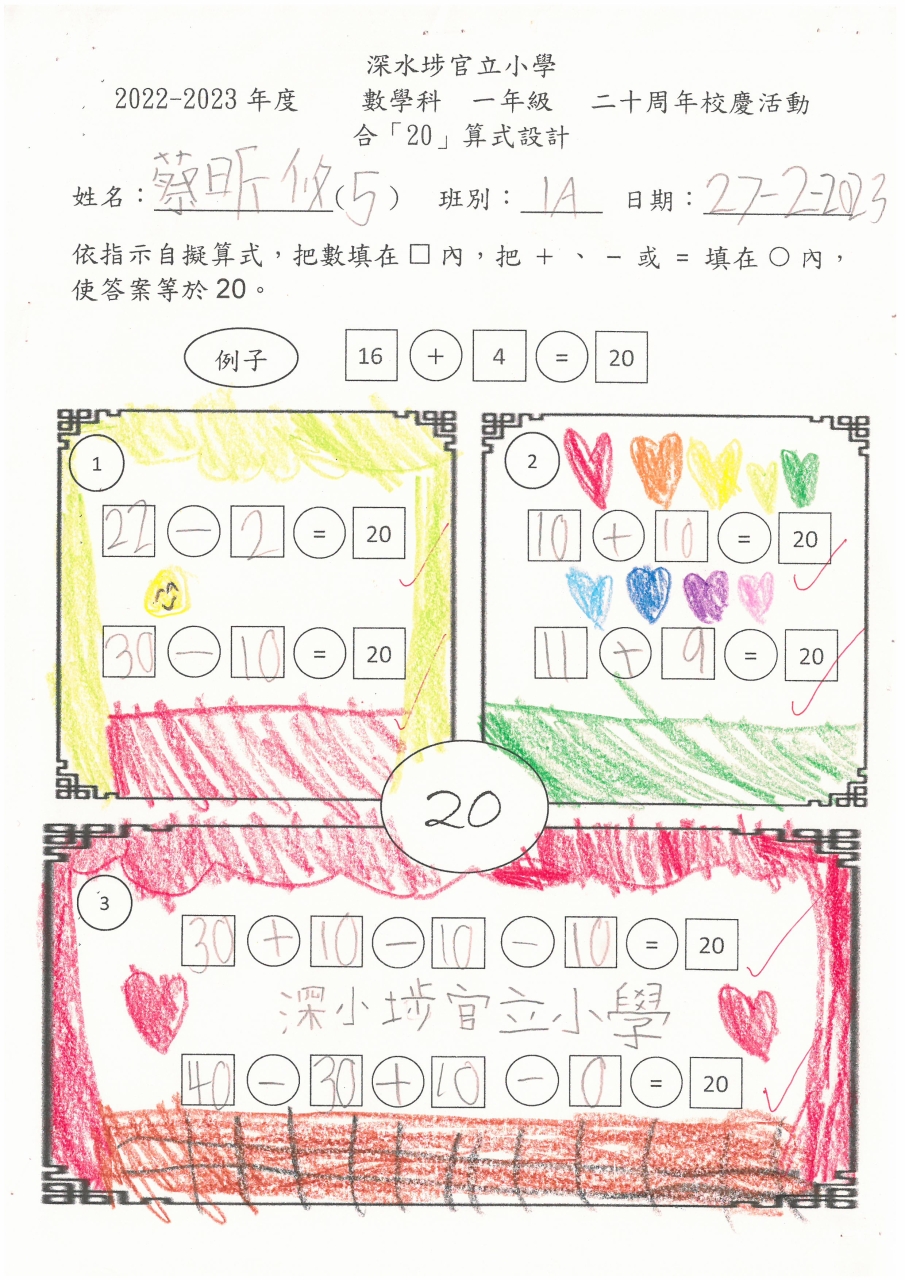 深水埗官立小學
2022-2023 年度 數學科 一年級 二十周年校慶活動
合「20」算式設計
姓名：蔡昕攸(5) 班別：1A 日期：27-2-2023
依指示自擬算式，把數填在 □ 內，把 + 、 - 或 = 填在 ○ 內，
使答案等於 20。
例子 16 + 4 = 20
1
22 - 2 = 20
30 - 10 = 20
2
10 + 10 = 20
11 + 9 = 20
20
3
30 + 10 - 10 - 10 = 20
深小埗官立小學
40 - 30 + 10 - 0 = 20